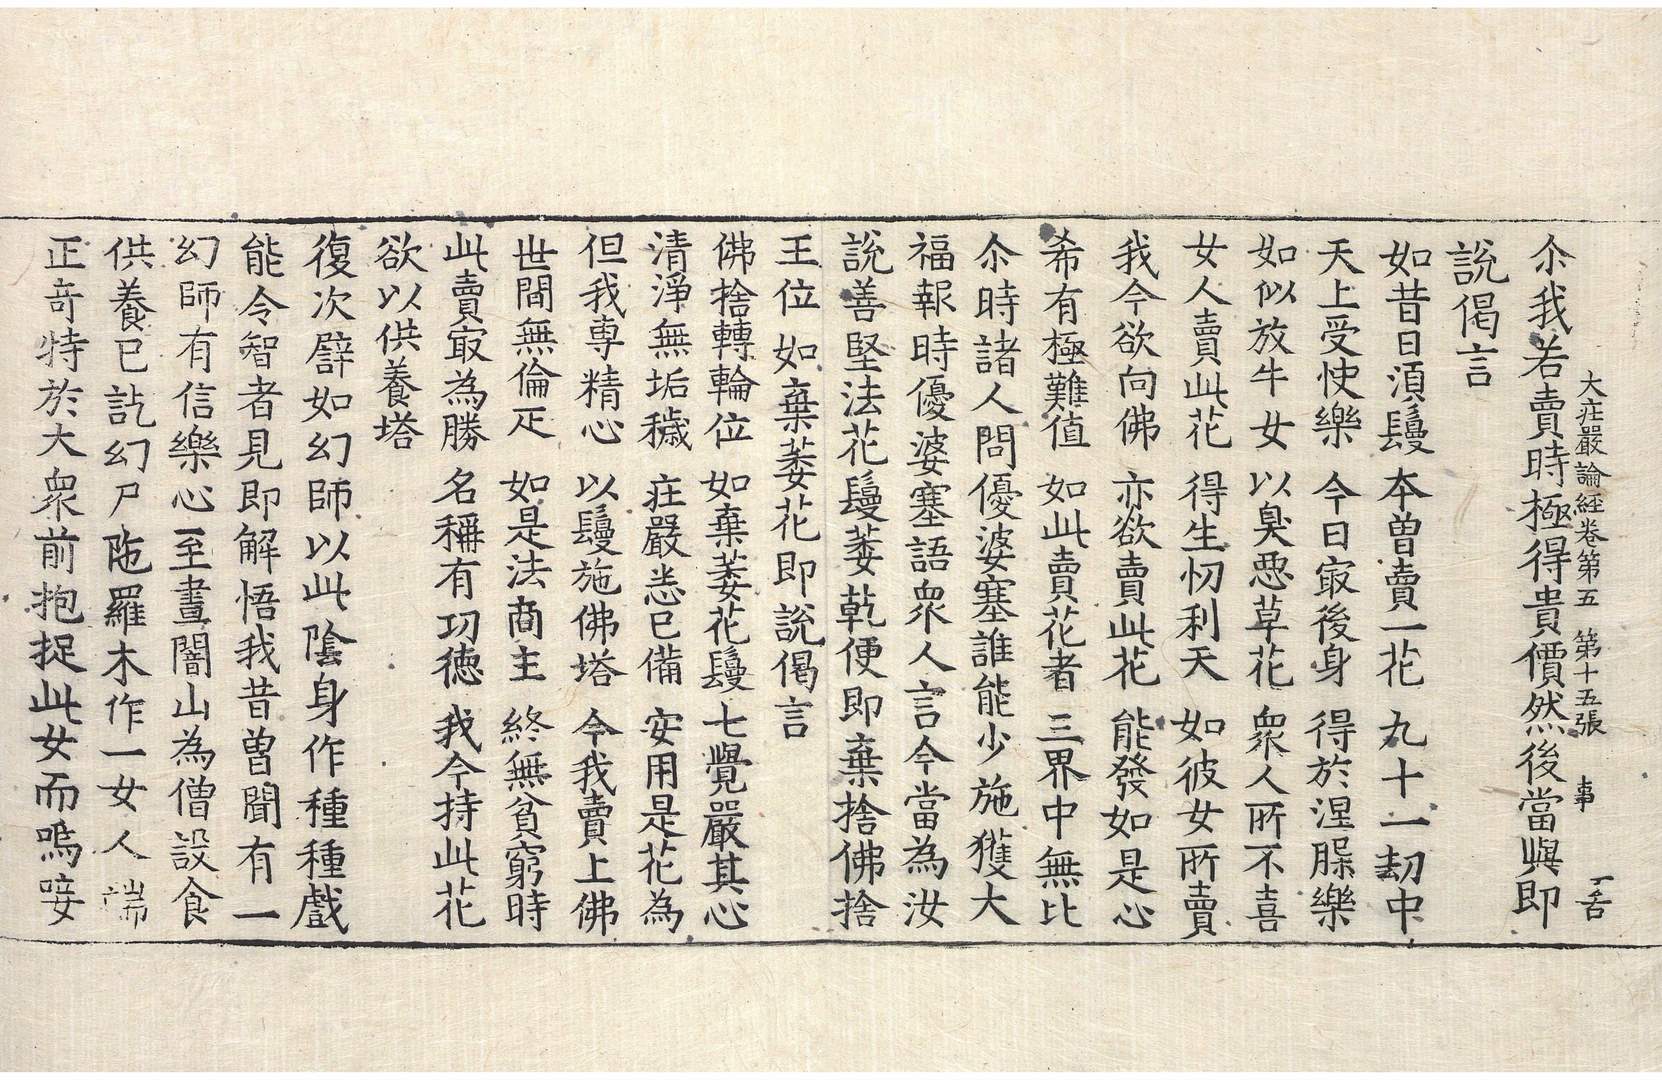 大庄嚴論經卷第五　第十五張　事
尒我若賣時極得貴價然後當與即
說偈言
如昔日湏鬘　本曽賣一花　九十一劫中
天上受快樂　今日㝡後身　得於涅槃樂
如似放牛女　以臭惡草花　衆人所不喜
女人賣此花　得生忉利天　如彼女所賣
我今欲向佛　亦欲賣此花　能發如是心
希有極難值　如此賣花者　三界中無比
尒時諸人問優婆塞誰能少施獲大
福報時優婆塞語衆人言今當為汝
說善堅法花鬘萎乾便即棄捨佛捨
王位如棄萎花即說偈言
佛捨轉輪位　如棄萎花鬘　七覺嚴其心
清淨無垢穢　庄嚴悉已備　安用是花為
但我專精心　以鬘施佛塔　今我賣上佛
世間無倫疋　如是法商主　終無貧窮時
此賣㝡為勝　名稱有功德　我今持此花
欲以供養塔
復次譬如幻師以此陰身作種種戲
能令智者見即解悟我昔曽聞有一
幻師有信樂心至晝闇山為僧設食
供養已訖幻尸陁羅木作一女人端
正竒特於大衆前抱捉此女而嗚唼